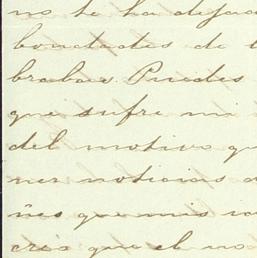 no te ha dejad
bondades de t
brabas. Puedes
que sufre mi
del motivo qu
ner noticias d
ñes que mis
creo que el no